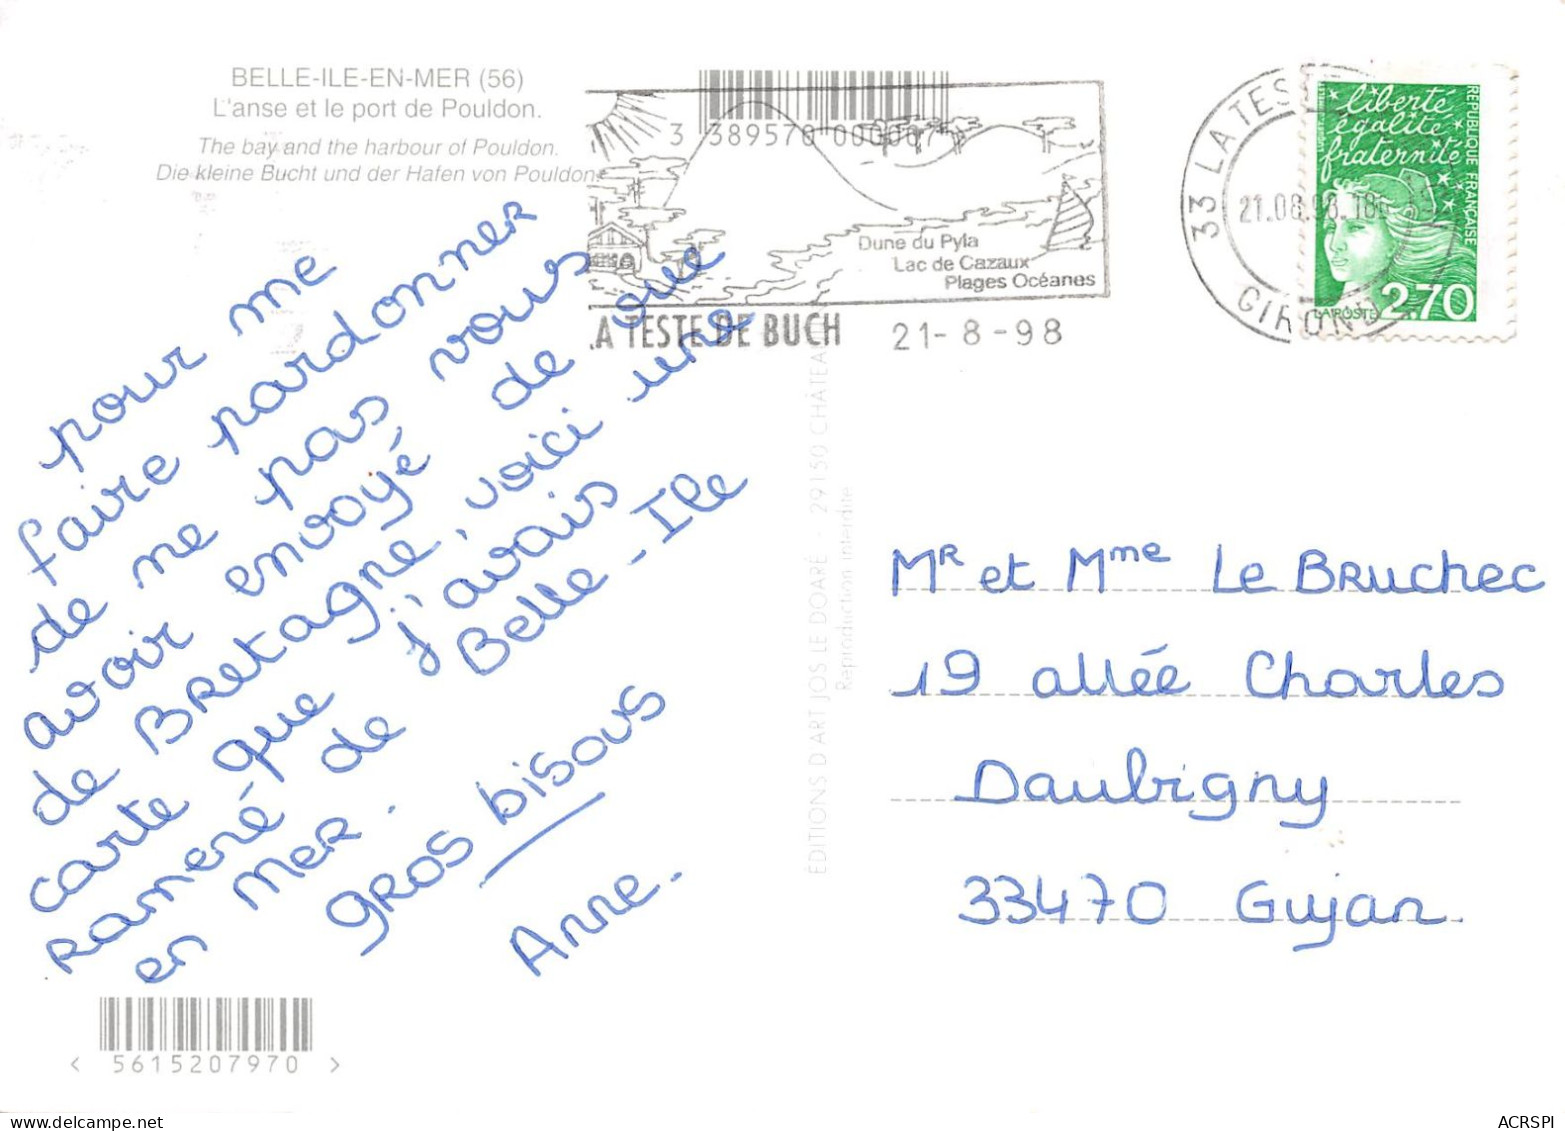 BELLE-ILE-EN-MER (56)
L'anse et le port de Pouldon.
The bay and the harbour of Pouldon.
Die kleine Bucht und der Hafen von Pouldon.
3 389570 000067
Dune du Pyla
Lac de Cazaux
Plages Océanes
LA TESTE DE BUCH
21-8-98
33 LA TESTE
21.08.98.18
GIRONDE
liberté
égalité
fraternité
RÉPUBLIQUE FRANÇAISE
LA POSTE
2,70
pour me
faire pardonner
de ne pas vous
avoir envoyé de que
de BRetagne, voici une
carte que j'avais
Rameré de Belle-Ile
en MeR.
gROS bisous
Anne.
EDITIONS D'ART JOS LE DOARÉ - 29150 CHÂTEAU
Reproduction interdite
MR et Mme Le BRuchec
19 allée Charles
Daubigny
33470 Gujan.
< 5615207970 >
ACRSPI